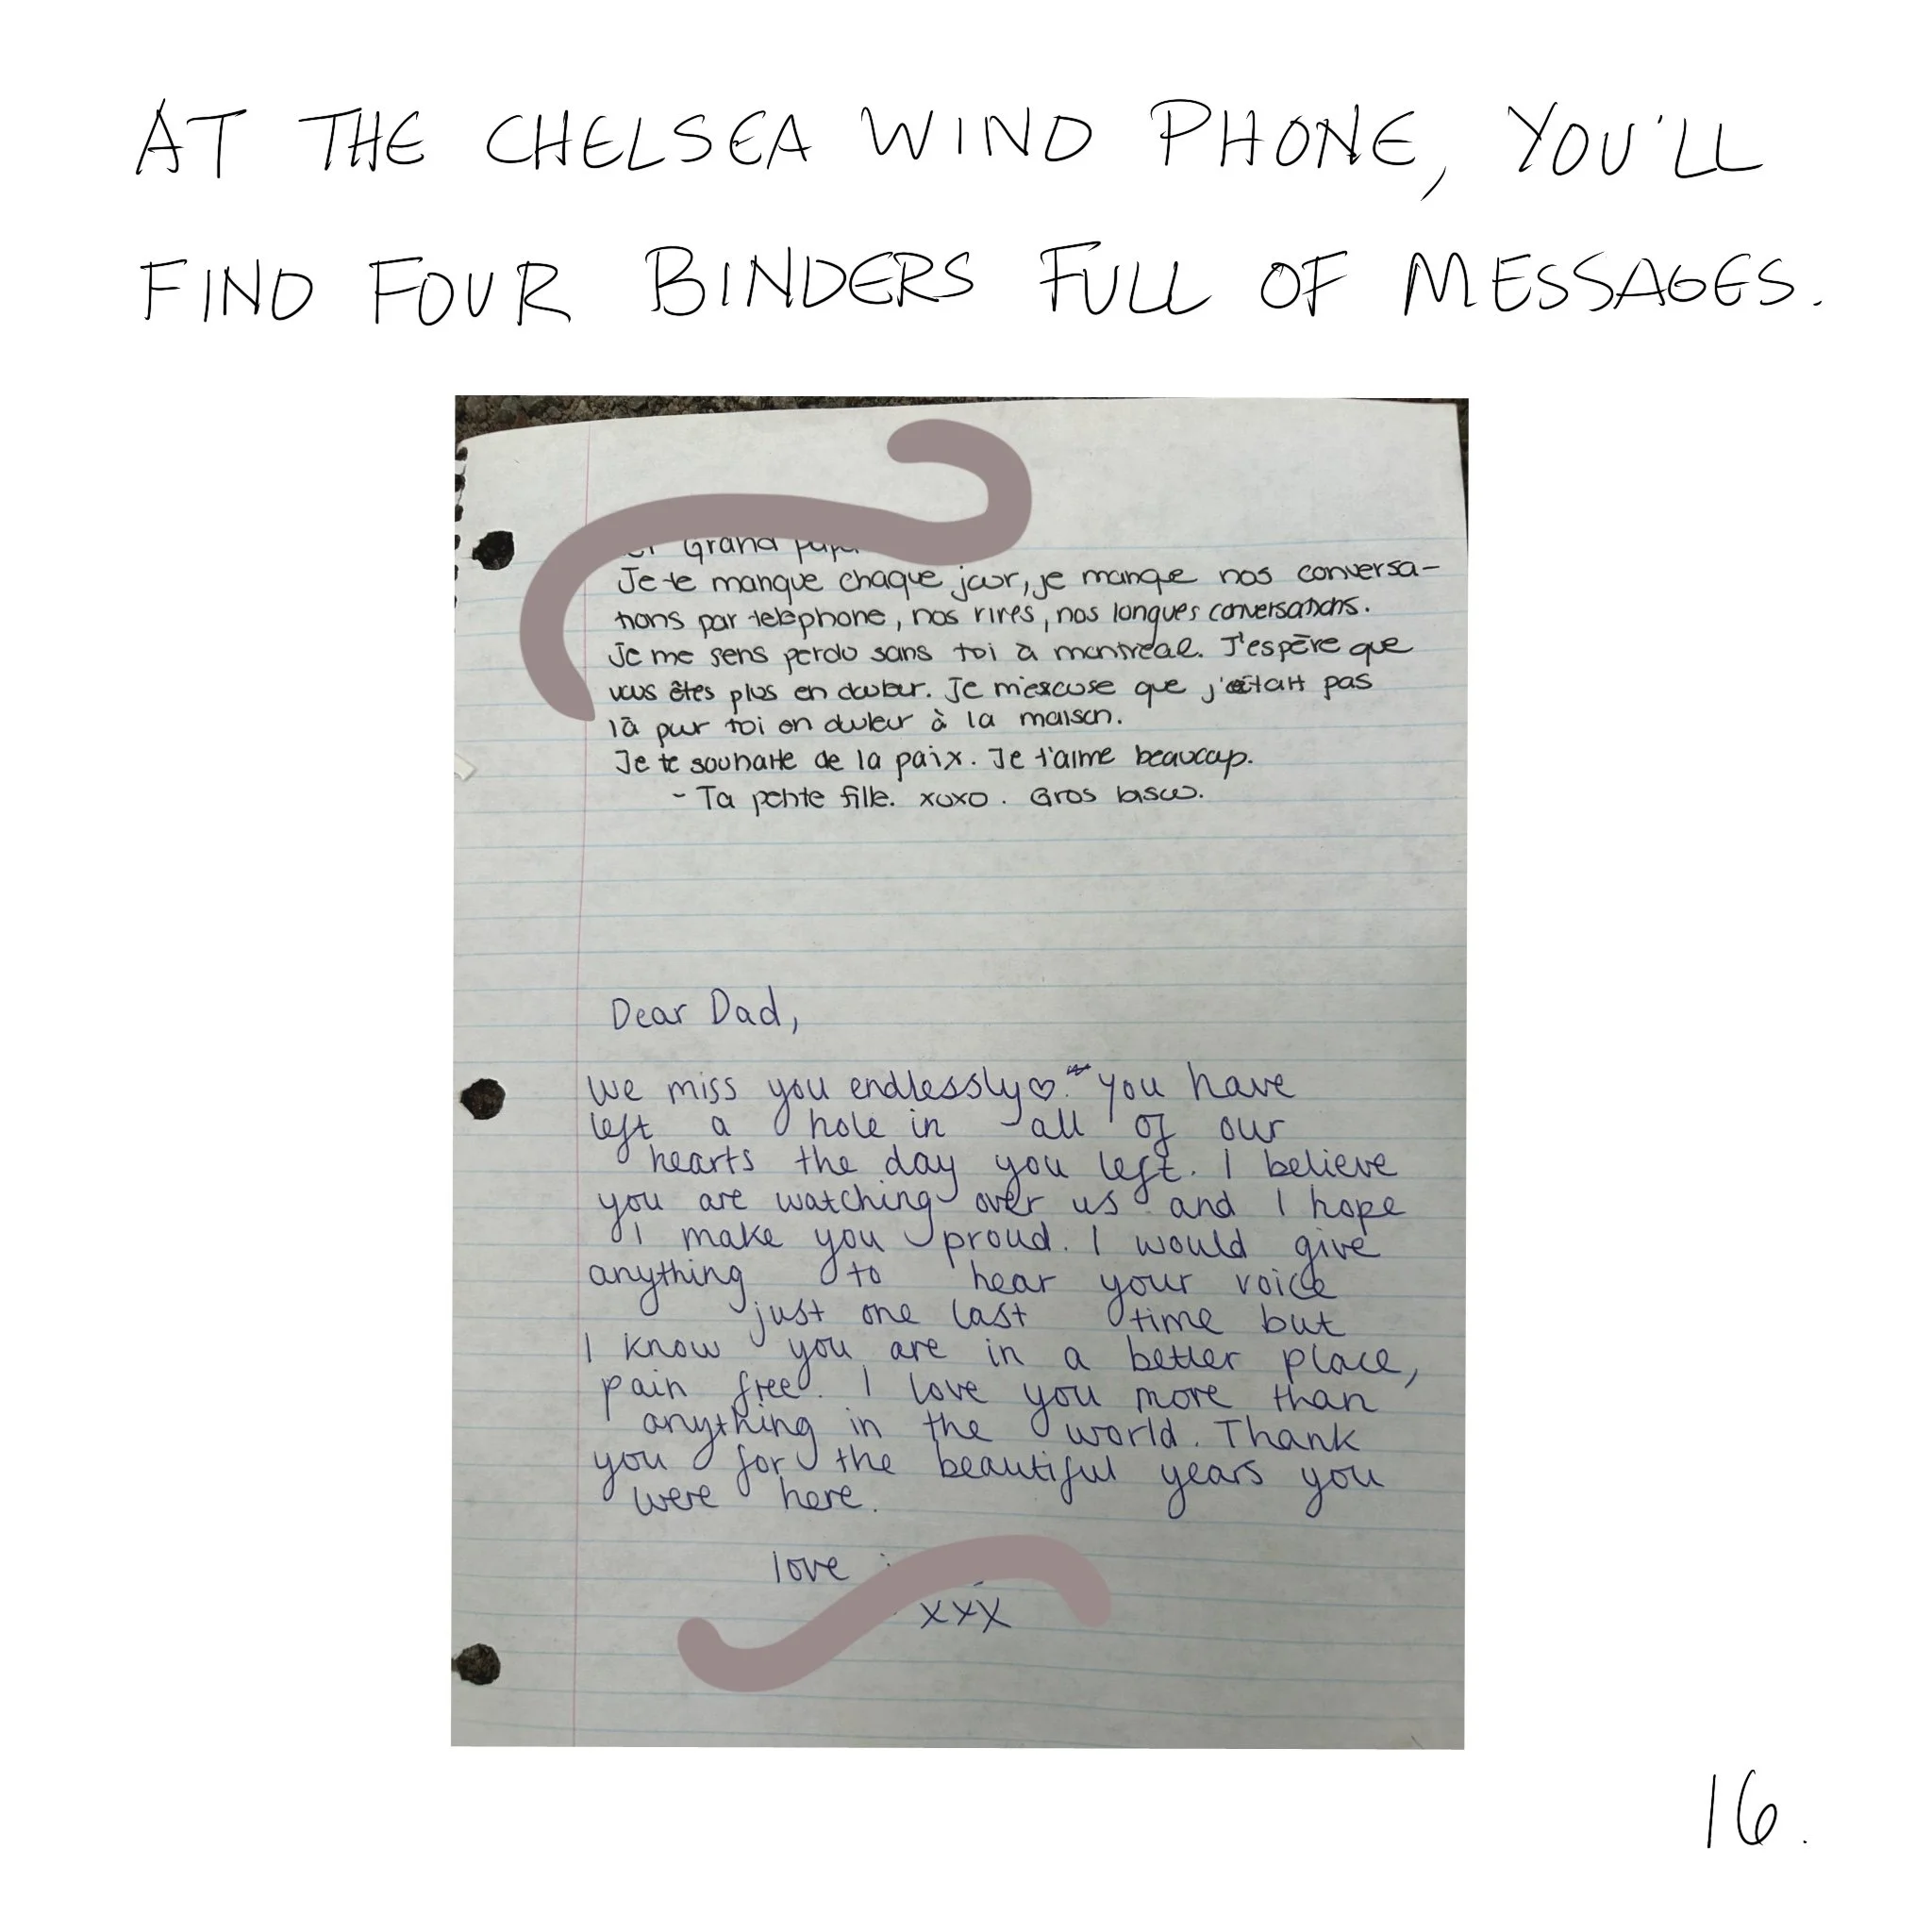 AT THE CHELSEA WIND PHONE, YOU'LL
FIND FOUR BINDERS FULL OF MESSAGES.
Grand papa
Je te manque chaque jour, je manque nos conversa-
tions par telephone, nos rires, nos longues conversations.
Je me sens perdu sans toi à montréal. J'espère que
vous êtes plus en douleur. Je m'excuse que j'était pas
là pour toi en duleur à la maison.
Je te souhaite de la paix. Je t'aime beaucoup.
- Ta petite fille. xoxo. Gros
Dear Dad,
we miss you endlessly♡. you have
left a hole in all of our
hearts the day you left. I believe
you are watching over us and I hope
I make you proud. I would give
anything to hear your voice
just one last time but
I know you are in a better place,
pain free. I love you more than
anything in the world. Thank
you for the beautiful years you
were here.
love
xxx
16.